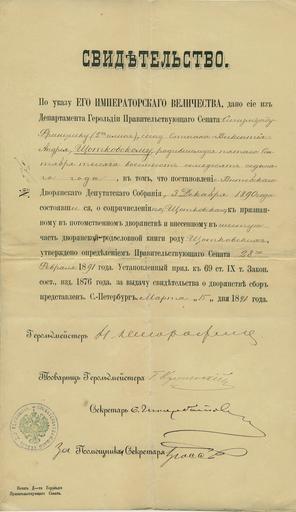 СВИДѢТЕЛЬСТВО.
По указу ЕГО ИМПЕРАТОРСКАГО ВЕЛИЧЕСТВА, дано сіе изъ
Департамента Герольдіи Правительствующаго Сената
Францишку сыну
Андрея, Щотковскому, родившемуся
тысяча восемьсотъ семьдесятъ седьма-
го года, въ томъ, что постановленіемъ Витебскаго
Дворянскаго Депутатскаго Собранія, 3 Декабря 1890 года
состоявшемся, о сопричисленіи Щотковскаго къ признан-
ному въ потомственномъ дворянствѣ и внесенному въ шестую
часть дворянской родословной книги роду Щотковскихъ,
утверждено опредѣленіемъ Правительствующаго Сената 28
Февраля 1891 года. Установленный прил. къ 69 ст. IX т. Закон.
сост., изд. 1876 года, за выдачу свидѣтельства о дворянствѣ сборъ
представленъ. С.-Петербургъ, Марта дня 1891 года.
Герольдмейстеръ
Товарищъ Герольдмейстера
Секретарь
За Помощника Секретаря
Печать Д—та Герольдіи
Правительствующаго Сената.